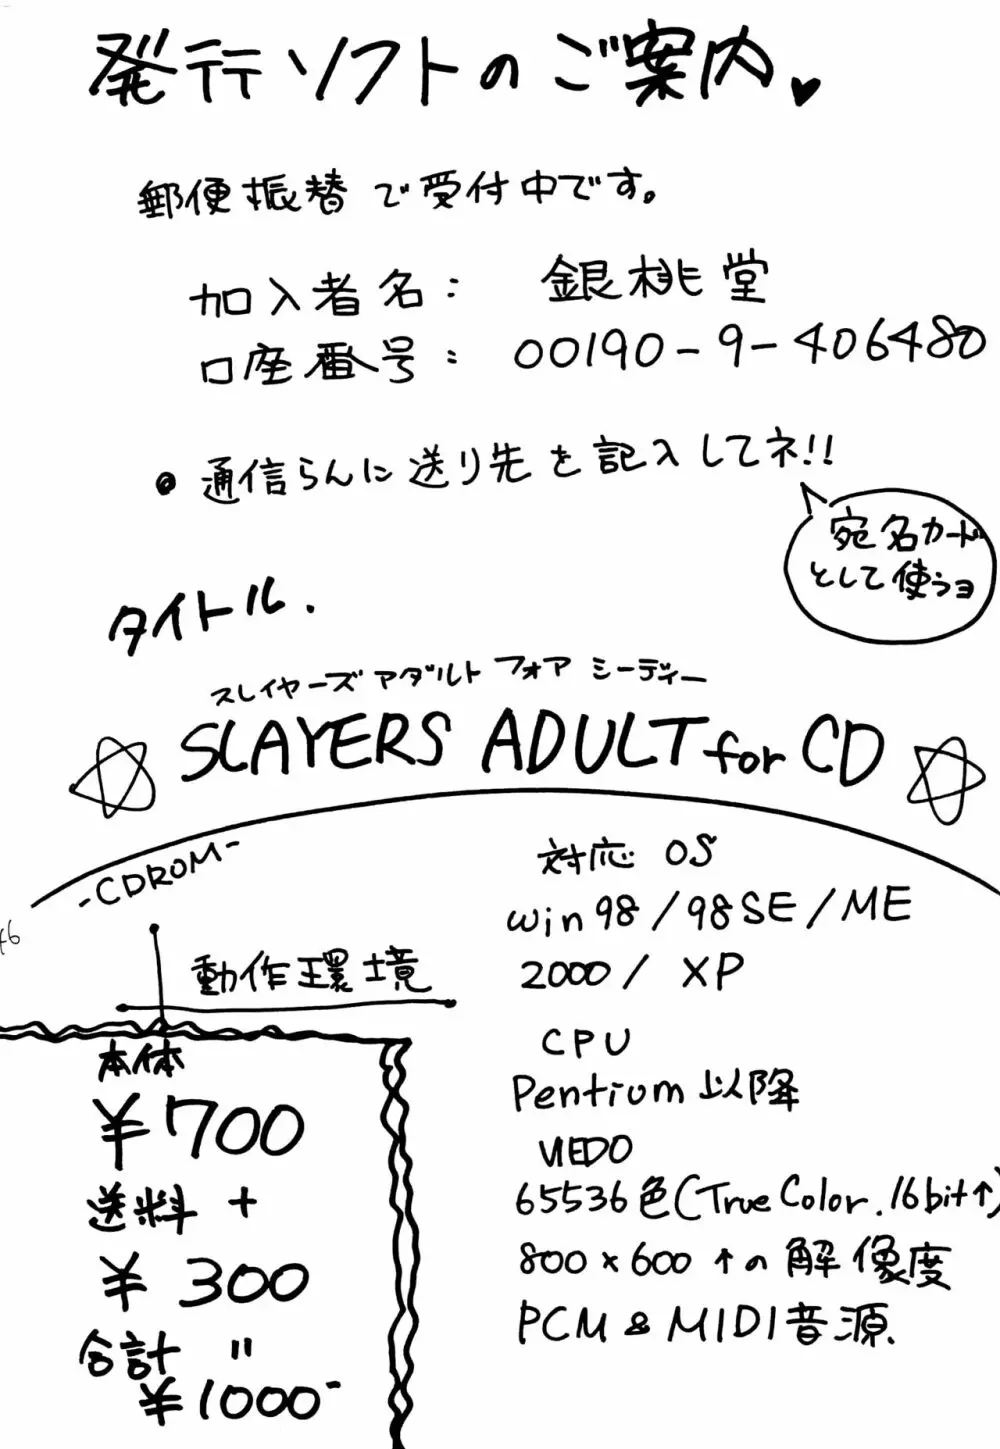 発行ソフトのご案内♥
郵便振替で受付中です。
加入者名： 銀桃堂
口座番号： 00190-9-406480
通信らんに送り先を記入してネ!!
宛名カード
として使うヨ
タイトル.
スレイヤーズ アダルト フォア シーディー
SLAYERS ADULT for CD
-CDROM-
動作環境
対応 OS
win98/98SE/ME
2000/ XP
CPU
Pentium以降
VIEDO
65536色(TrueColor.16bit↑)
800×600↑の解像度
PCM&MIDI音源.
46
本体
￥700
送料 +
￥300
合計 =
￥1000-